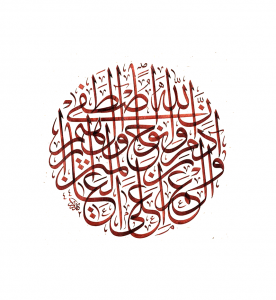 إِنَّ اللَّهَ اصْطَفَىٰ
آدَمَ وَنُوحًا وَآلَ إِبْرَاهِيمَ
وَآلَ عِمْرَانَ عَلَى الْعَالَمِينَ